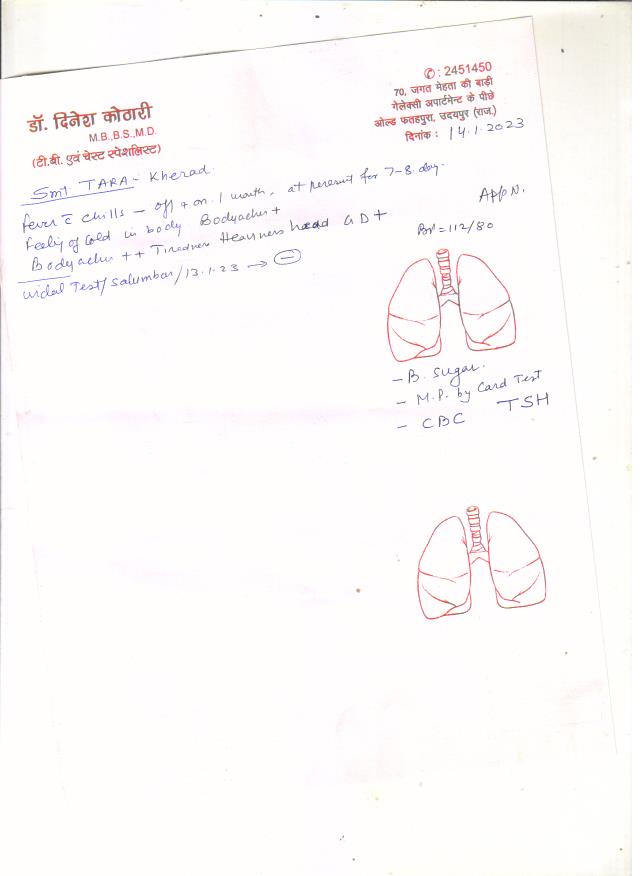 ✆: 2451450
70, जगत मेहता की बाड़ी
गेलेक्सी अपार्टमेन्ट के पीछे
ओल्ड फतहपुरा, उदयपुर (राज.)
दिनांक : 14.1.2023
डॉ. दिनेश कोठारी
M.B.,B.S.,M.D.
(टी.बी. एवं चेस्ट स्पेशलिस्ट)
Smt TARA - Kherad.
fever c̄ chills - off + on. 1 month, at present for 7-8 day.
Feeling of cold in body Bodyaches +
Bodyaches ++ Tiredness Heaviness head GD +
widal Test/Salumbar/13.1.23 → ⊖
App N.
BP = 112/80
- B. Sugar.
- M.P. by Card Test
- CBC TSH